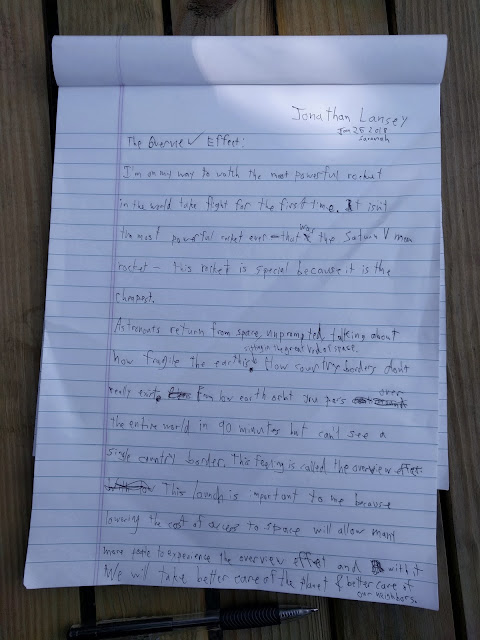 Jonathan Lansey
Jan 25 2018
Savannah
The Overview Effect:
I'm on my way to watch the most powerful rocket
in the world take flight for the first time. It isn't
the most powerful rocket ever - that was the Saturn V moon
rocket - this rocket is special because it is the
cheapest.
Astronauts return from space, unprompted, talking about
how fragile the earth is sitting in the great void of space. How country borders don't
really exist. From low earth orbit you pass over
the entire world in 90 minutes but can't see a
single country border. This feeling is called the overview effect.
This launch is important to me because
lowering the cost of access to space will allow many
more people to experience the overview effect and with it
We will take better care of the planet & better care of
our neighbors.